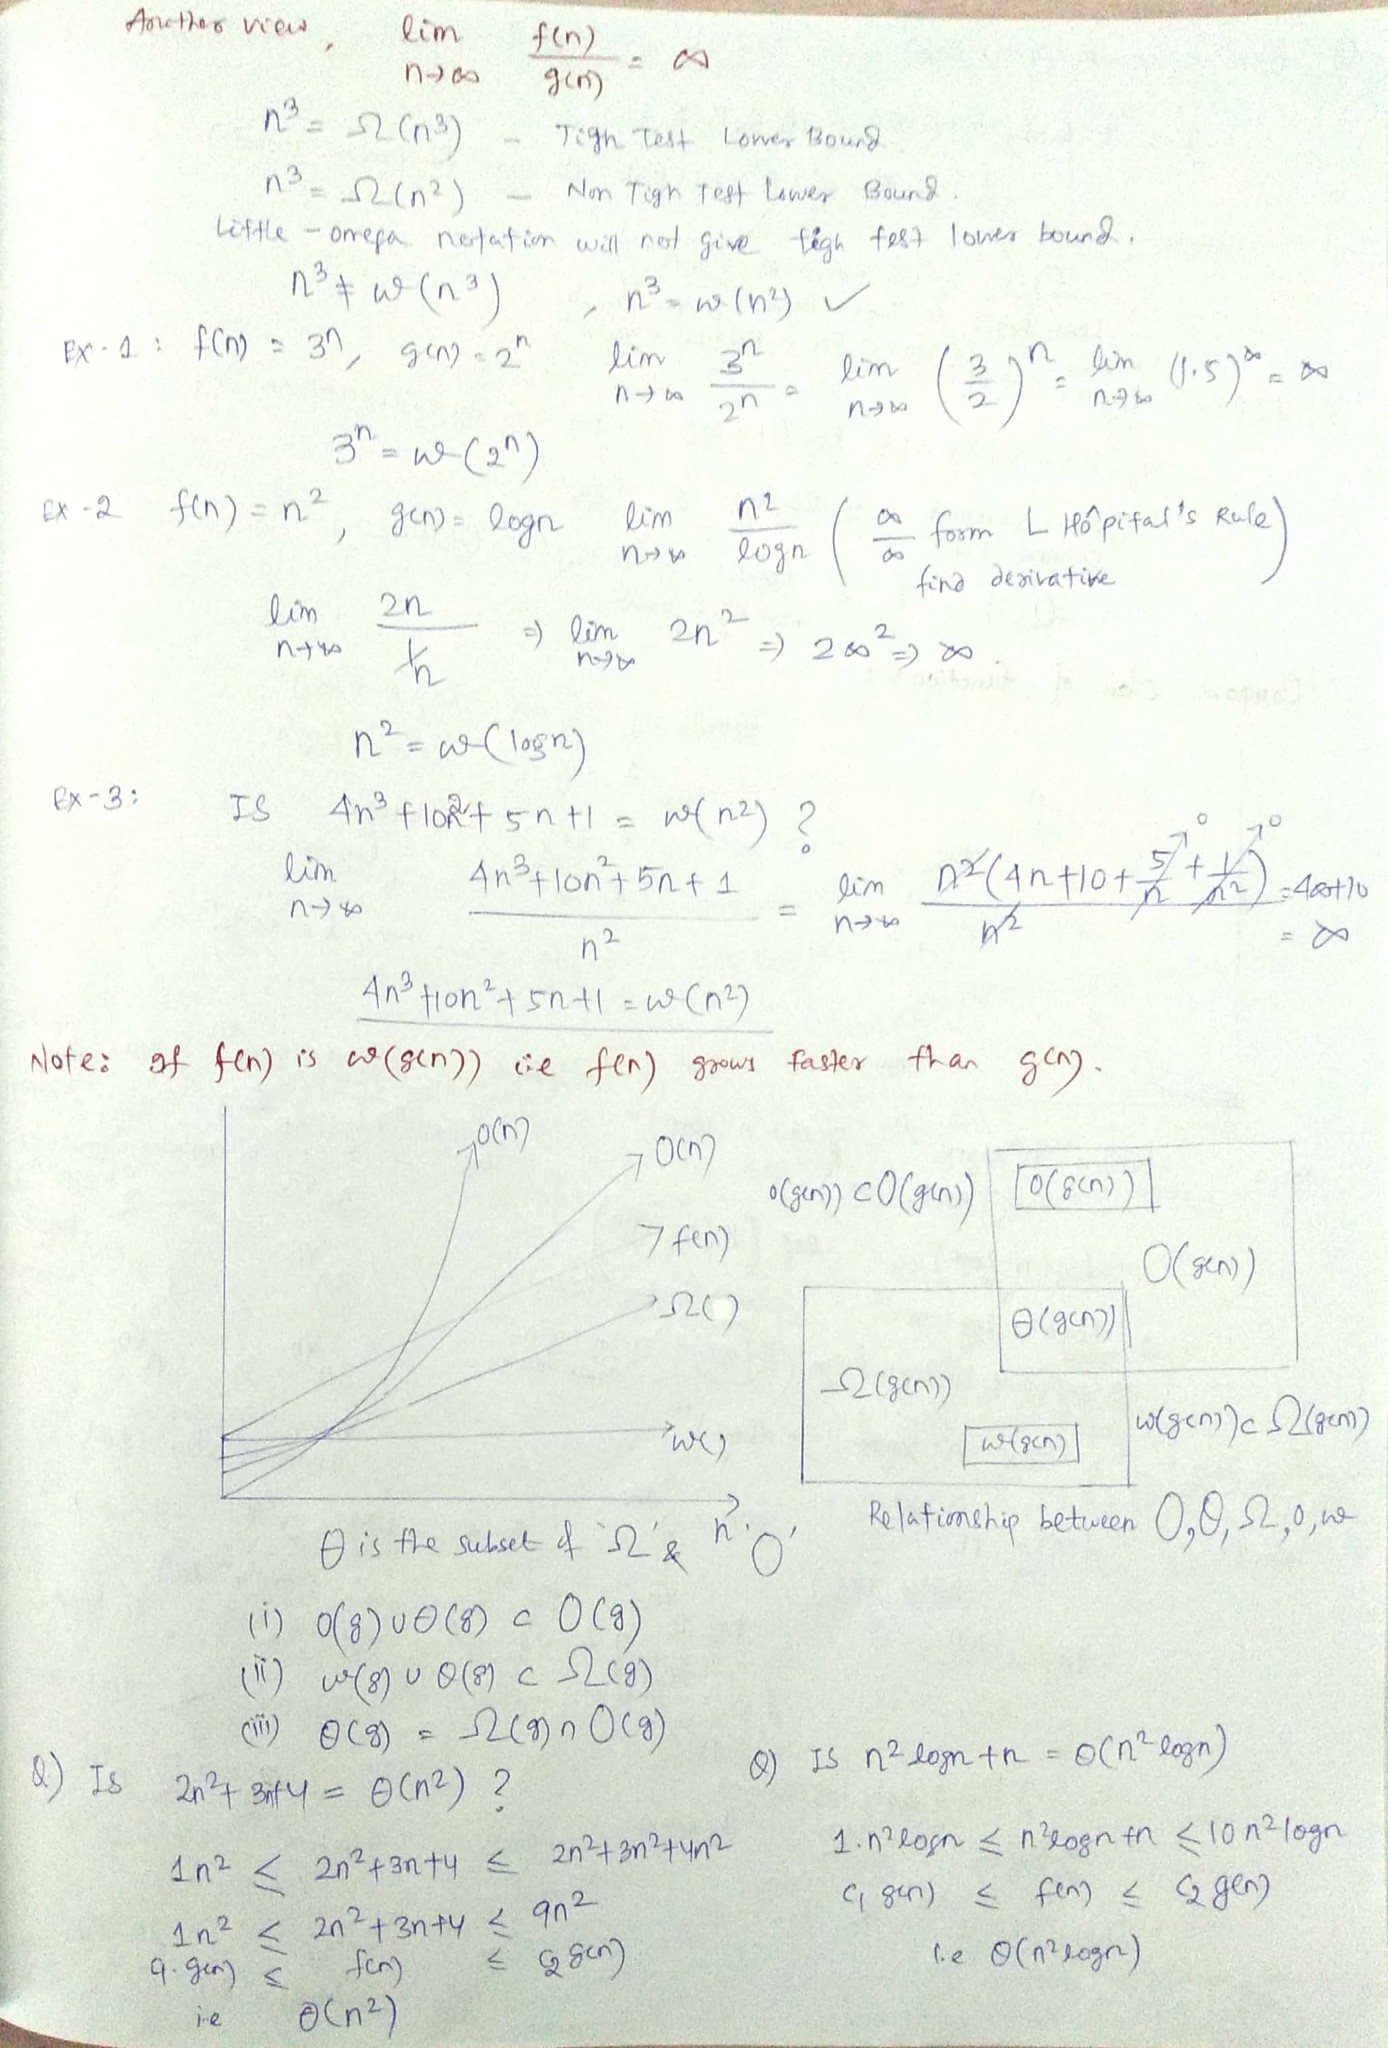 Another view, lim n→∞ f(n)/g(n) = ∞
n³ = Ω(n³) – Tigh Test Lower Bound
n³ = Ω(n²) – Non Tigh Test Lower Bound.
Little-omega notation will not give tigh test lower bound.
n³ ≠ ω(n³) , n³ = ω(n²) ✓
EX-1: f(n) = 3ⁿ, g(n) = 2ⁿ lim n→∞ 3ⁿ/2ⁿ = lim n→∞ (3/2)ⁿ = lim n→∞ (1.5)^∞ = ∞
3ⁿ = ω(2ⁿ)
EX-2 f(n) = n², g(n) = logn lim n→∞ n²/logn (∞/∞ form L Hôpital's Rule)
find derivative
lim n→∞ 2n/(1/n) ⇒ lim n→∞ 2n² ⇒ 2∞² ⇒ ∞
n² = ω(logn)
EX-3: IS 4n³+10n²+5n+1 = ω(n²) ?
lim n→∞ (4n³+10n²+5n+1)/n² = lim n→∞ n²(4n+10+5/n+1/n²)/n² = 4∞+10
0 0
= ∞
4n³+10n²+5n+1 = ω(n²)
Note: If f(n) is ω(g(n)) i.e f(n) grows faster than g(n).
o(n)
O(n)
f(n)
Ω( )
ω( )
n
o(g(n)) ⊂ O(g(n))
o(g(n))
O(g(n))
θ(g(n))
Ω(g(n))
ω(g(n))
ω(g(n)) ⊂ Ω(g(n))
Relationship between O, θ, Ω, o, ω
θ is the subset of 'Ω' & 'O'
(i) o(g) ∪ θ(g) ⊂ O(g)
(ii) ω(g) ∪ θ(g) ⊂ Ω(g)
(iii) θ(g) = Ω(g) ∩ O(g)
Q) Is 2n²+3n+4 = θ(n²) ?
1n² ≤ 2n²+3n+4 ≤ 2n²+3n²+4n²
1n² ≤ 2n²+3n+4 ≤ 9n²
c₁.g(n) ≤ f(n) ≤ c₂ g(n)
i.e θ(n²)
Q) IS n²logn+n = θ(n²logn)
1.n²logn ≤ n²logn+n ≤ 10n²logn
c₁ g(n) ≤ f(n) ≤ c₂ g(n)
i.e θ(n²logn)